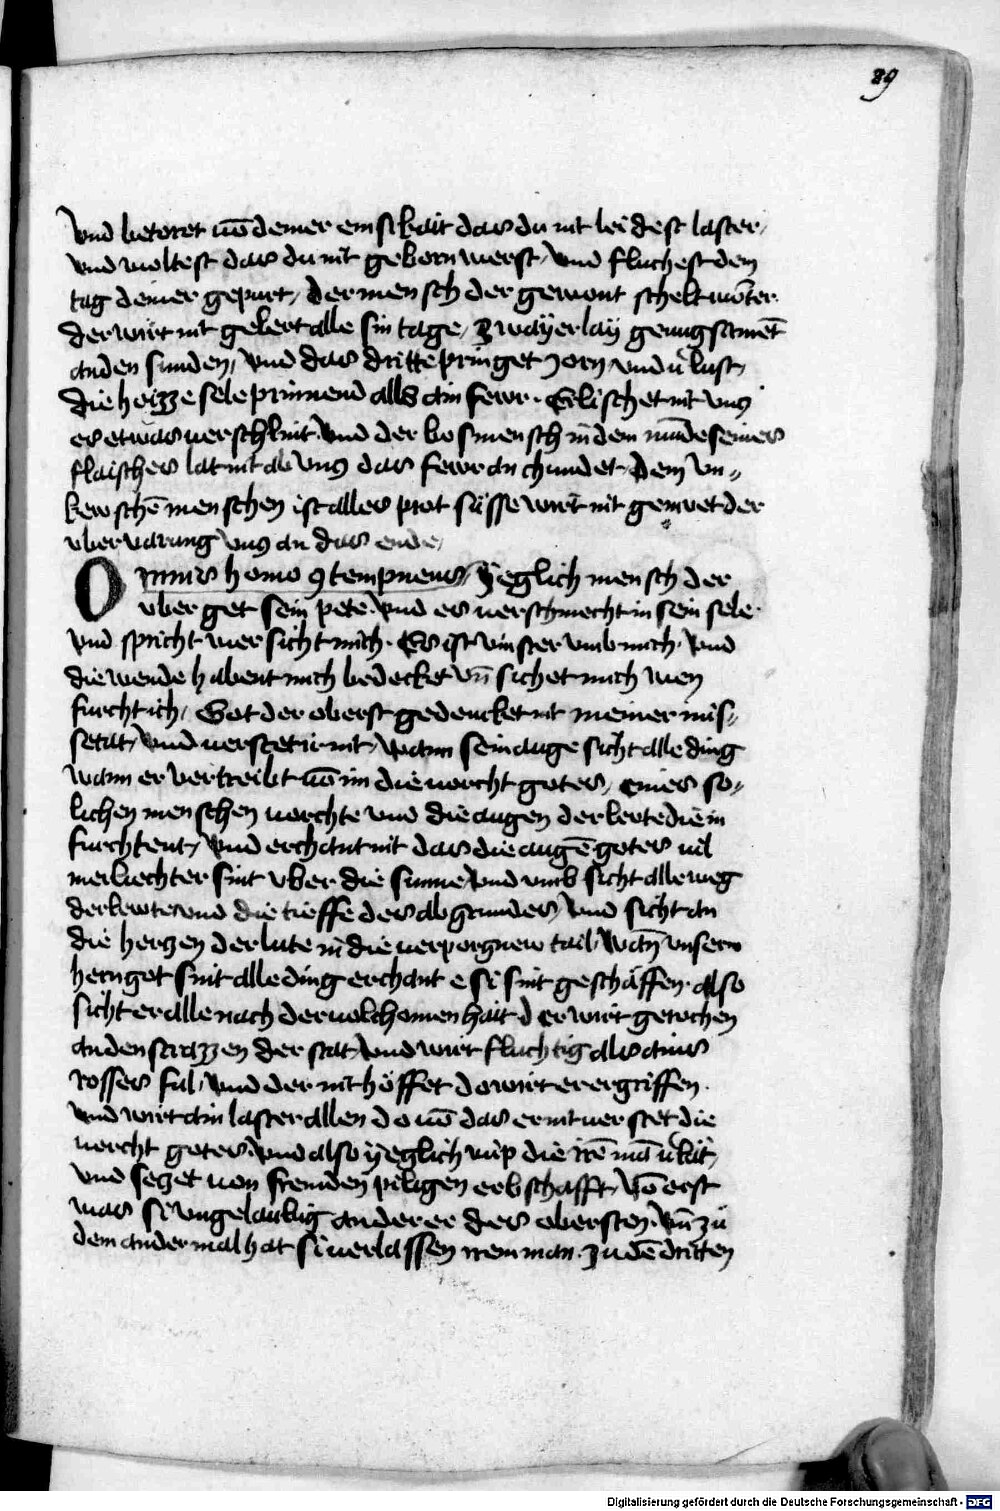 89
vnd betoret vō deiner emsikait das du nit leidest laster /
vnd woltest das du nit geborn werst / vnd fluchest dem
tag deiner gepurt / der mensch der gewont scheltwōter
der wirt nit gelert alle sin tage / zwayerlay genugsament
an den sunden / vnd das dritte pringet zorn vnd v̓lust /
die hoizze sele prinnend alls ain fewr . Erlischet nit vntz
es etwas verschlint . vnd der bos mensch in dem munde seines
flaisches lat nit ab vntz das fewr an chundet . dem vn-
kewschē menschen ist alles prot süsse wirt nit gemuet der
vbervarung vntz an das ende /
Omnis homo 9tempnens / Yeglich mensch der
vber get sein pete . vnd er verschmecht in sein sele .
vnd spricht wer sicht mich . Es ist vinster vmb mich . vnd
die wende habent mich bedecket vn̄ sichet mich wen
furcht ich / Got der oberst gedencket nit meiner mis-
setat / vnd verstet ir nit / wann sein auge sicht alle ding
wann er vertreibt vō im die vorcht gotes / eines so-
lichen menschen vorchte vnd die augen der lewte die in
furchtent / vnd erchant nit das die augē gotes vil
mer liechter sint vber die sunne / vnd vmb sicht alle weg
der lewte vnd die tieffe des abgrundes / vnd sicht an
die hertzen der lute in die verporgnew tail / wan̄ vnserm
hern got sint alle ding erchant e si sint geschäffen . also
sicht er alle nach der volchomenhait d er wirt gerochen
an den strazzen der stat / vnd wirt fluchtig als ains
rosses ful / vnd der nit höffet do wirt er ergriffen .
vnd wirt ain laster allen do vō das er nit verstet die
vorcht gotes . vnd also yeglich wip die irē mā v̓lait /
vnd setzet von fremden piligen erbschafft / Vō erst
was si vngelaubig an der er des obersten . vn̄ zů
dem ander mal hat si verlassen iren man . zu dē dritten
Digitalisierung gefördert durch die Deutsche Forschungsgemeinschaft - DFG